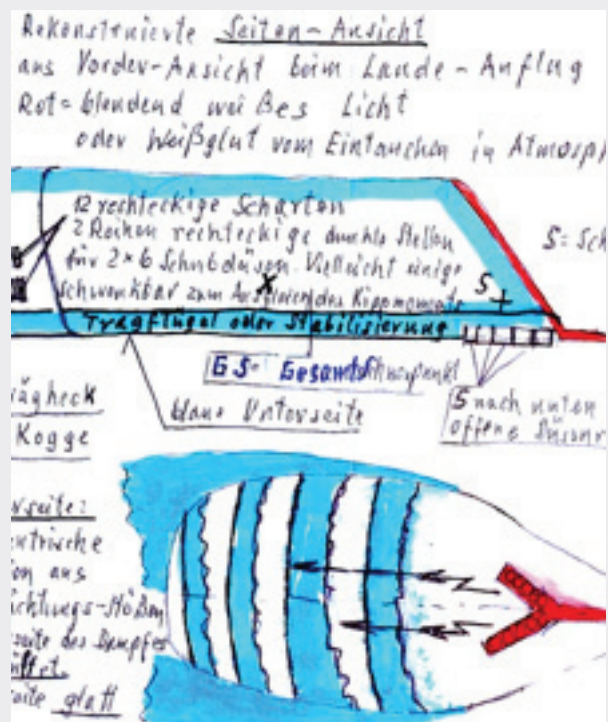 Rekonstruierte Seiten-Ansicht
aus Vorder-Ansicht beim Lande-Anflug
Rot = blendend weißes Licht
oder Weißglut vom Eintauchen in Atmosph
12 rechteckige Scharten
2 Reihen rechteckige dunkle Stellen
für 2 × 6 Schubdüsen. Vielleicht einige
schwenkbar zum Aussteuern des Kippmoments
S = Sch
S
Tragflügel oder Stabilisierung
GS = Gesamtschwerpunkt
blaue Unterseite
5 nach unten
offene Düsen
ägheck
Kogge
rseite:
ntrische
en aus
ichtungs-Stößen
seite des Dampfes
seite glatt